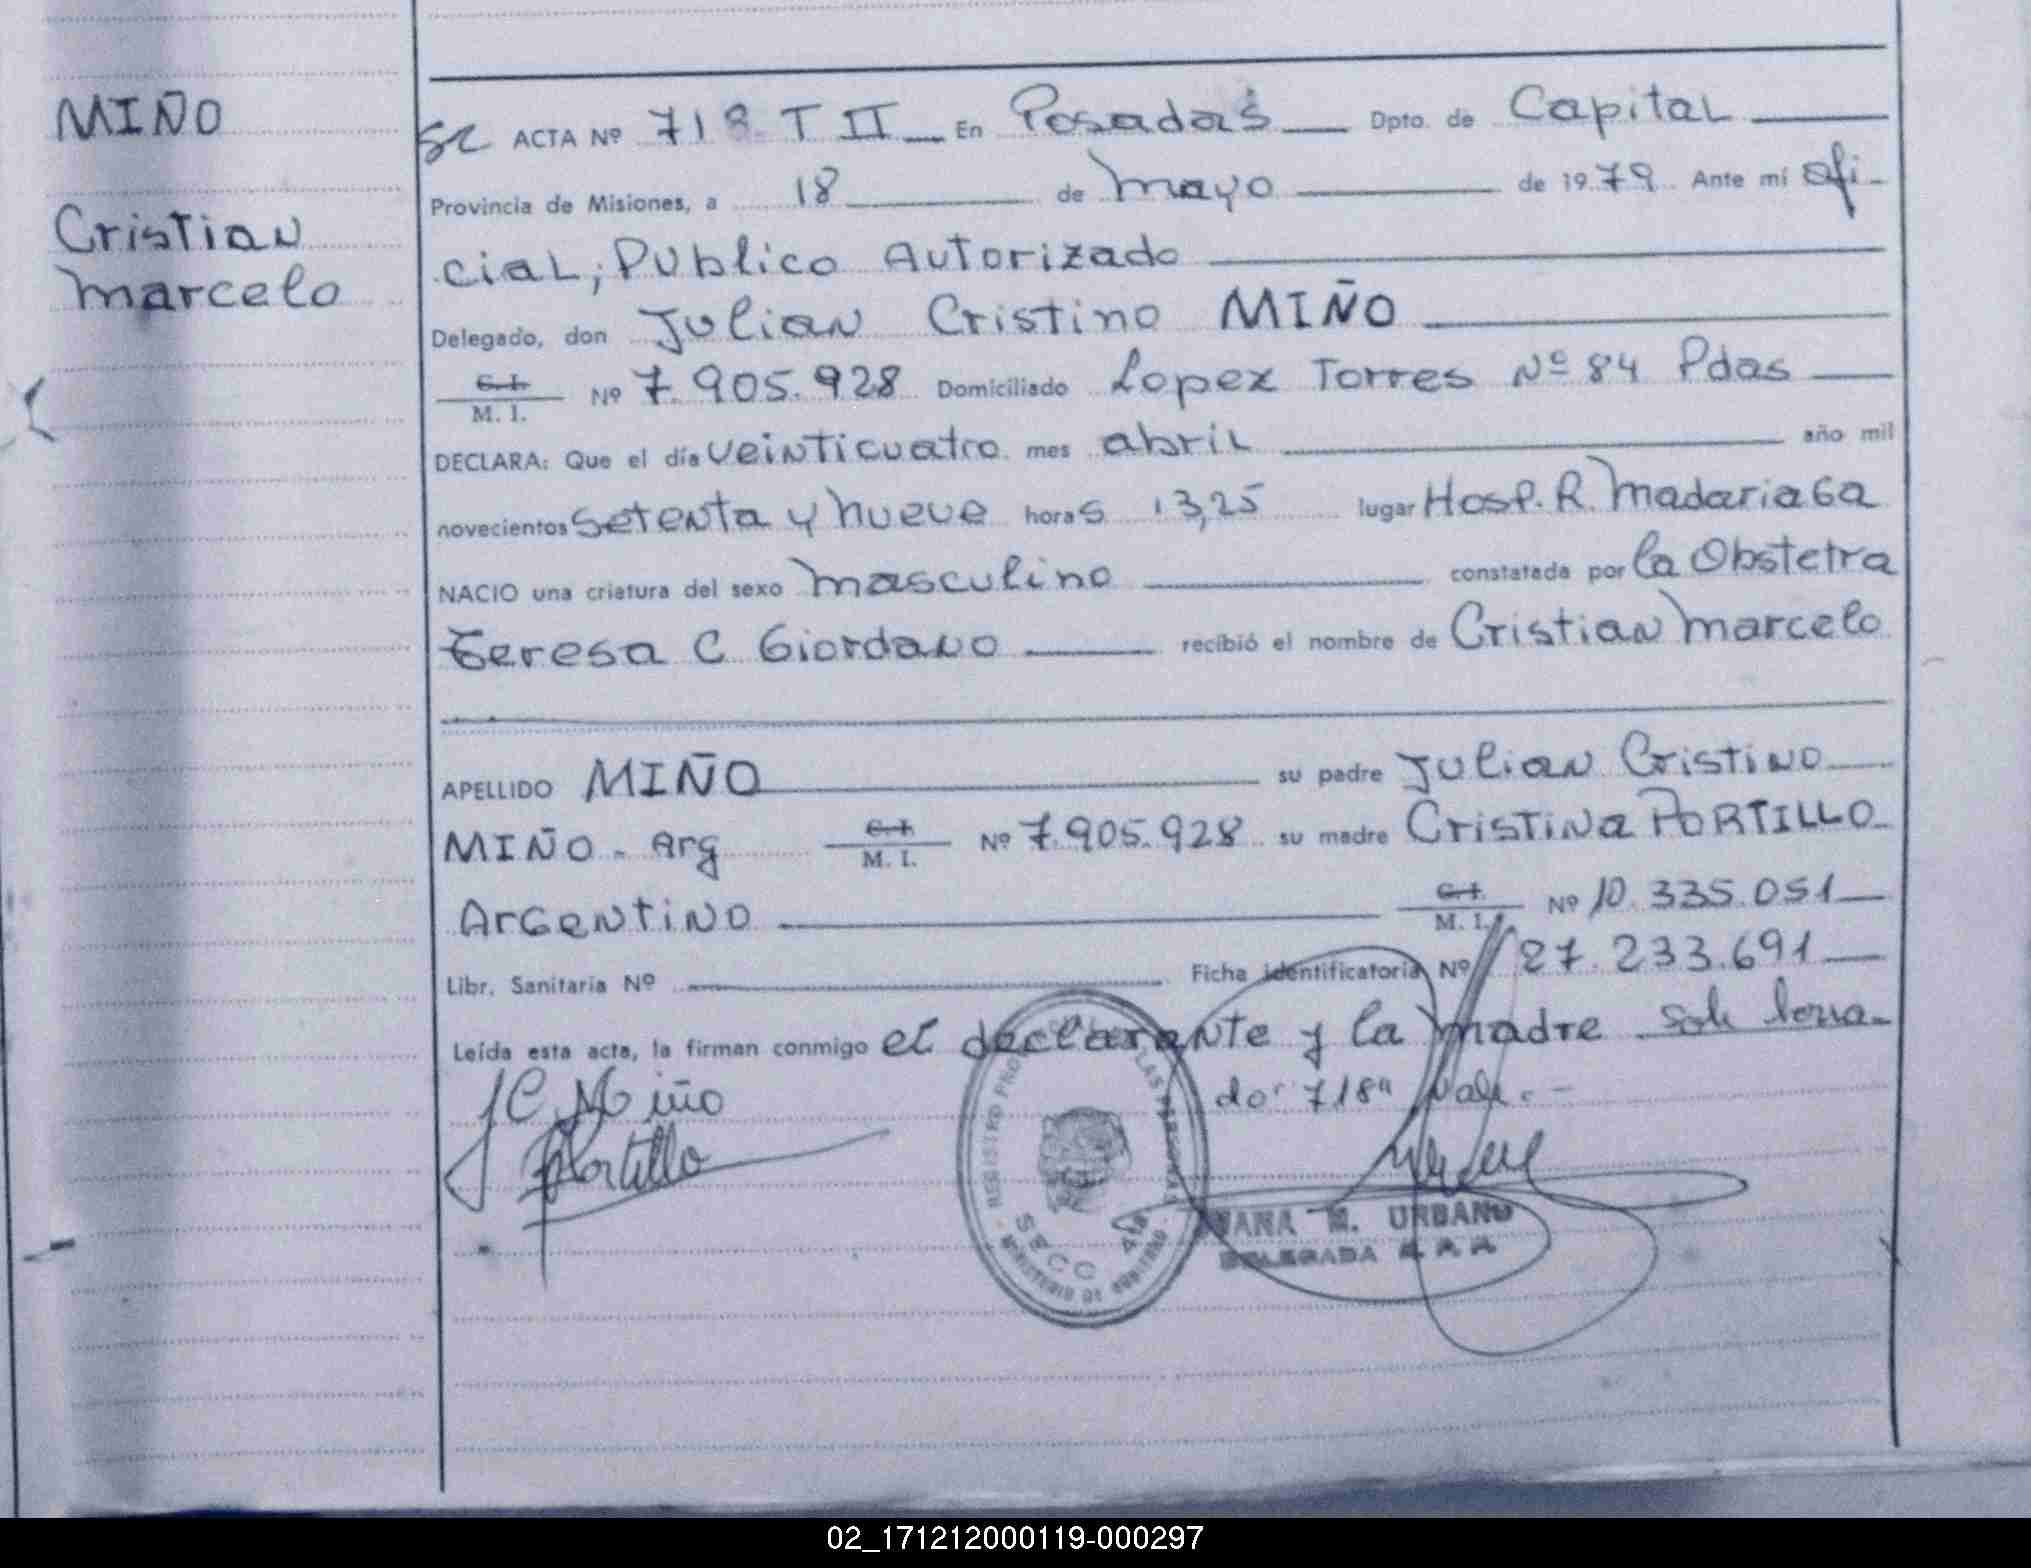 MIÑO
Cristian
marcelo
ACTA Nº 718 T II En Posadas Dpto. de Capital
Provincia de Misiones, a 18 de mayo de 1979. Ante mí ofi-
cial, Publico Autorizado
Delegado, don Julian Cristino MIÑO
C. I.
M. I. Nº 7.905.928 Domiciliado Lopez Torres Nº 84 Pdas
DECLARA: Que el día veinticuatro mes abril año mil
novecientos setenta y nueve horas 13,25 lugar Hosp. R. Madariaga
NACIO una criatura del sexo masculino constatada por la Obstetra
Teresa C Giordano recibió el nombre de Cristian marcelo
APELLIDO MIÑO su padre Julian Cristino
MIÑO - Arg C. I.
M. I. Nº 7.905.928 su madre Cristina PORTILLO
Argentino C. I.
M. I. Nº 10.335.051
Libr. Sanitaria Nº Ficha identificatoria Nº 27.233.691
Leída esta acta, la firman conmigo el declarante y la madre sobre borra-
do: 718" Vale.-
JC Miño
Portillo
REGISTRO LAS PERSONAS
SECC
MINISTERIO DE GOBIERNO
M. URBANO
DELEGADA
02_171212000119-000297